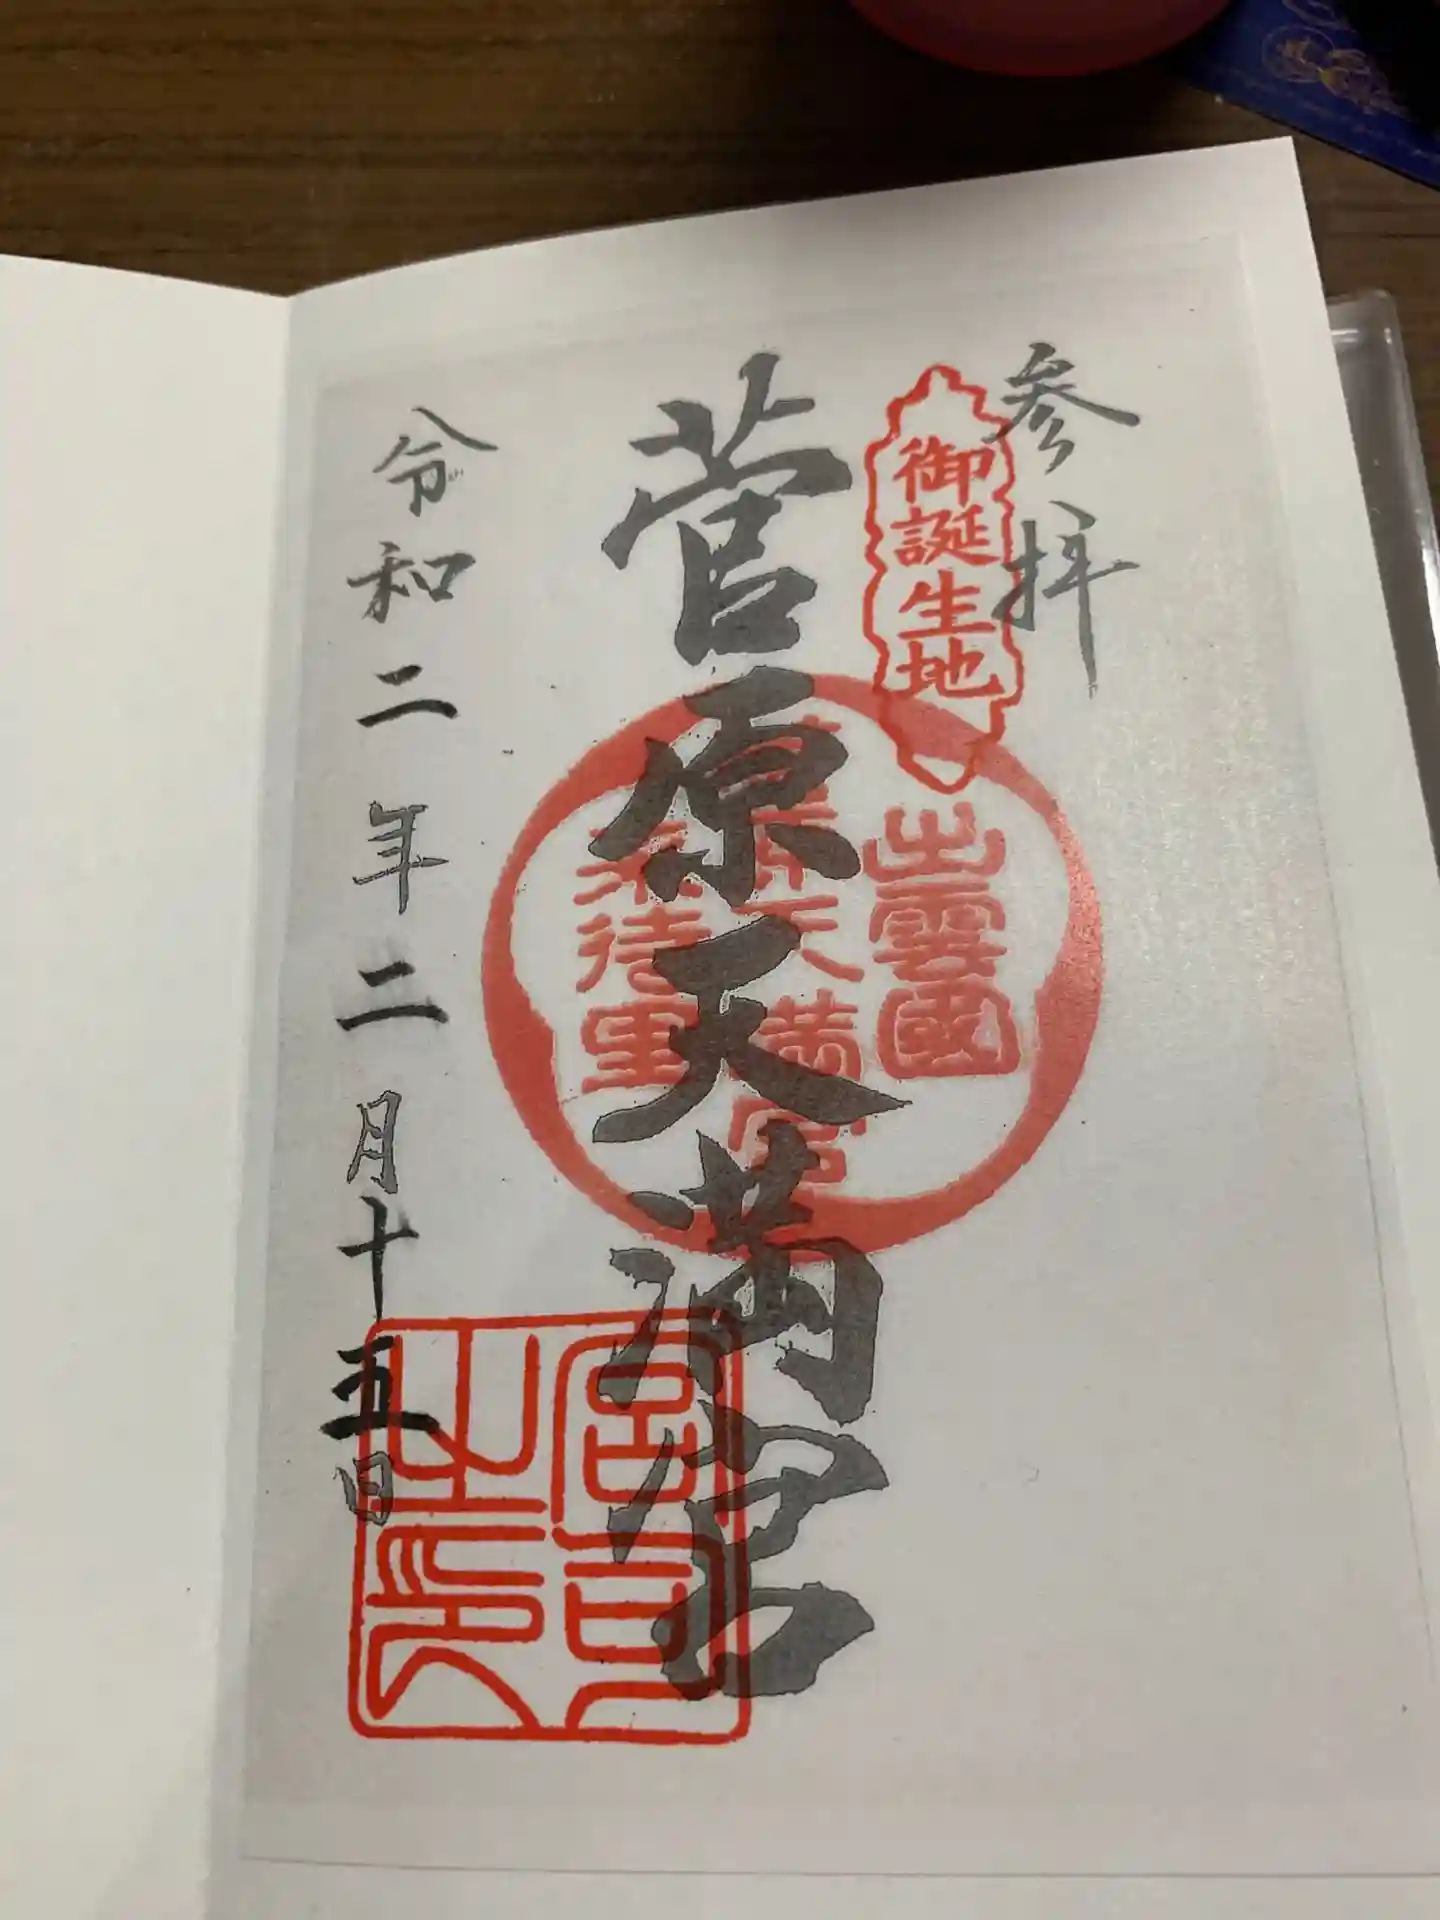 参拝
御誕生地
菅原天満宮
出雲國
菅原天満宮
来待里
令和二年二月十五日
宮司
之印